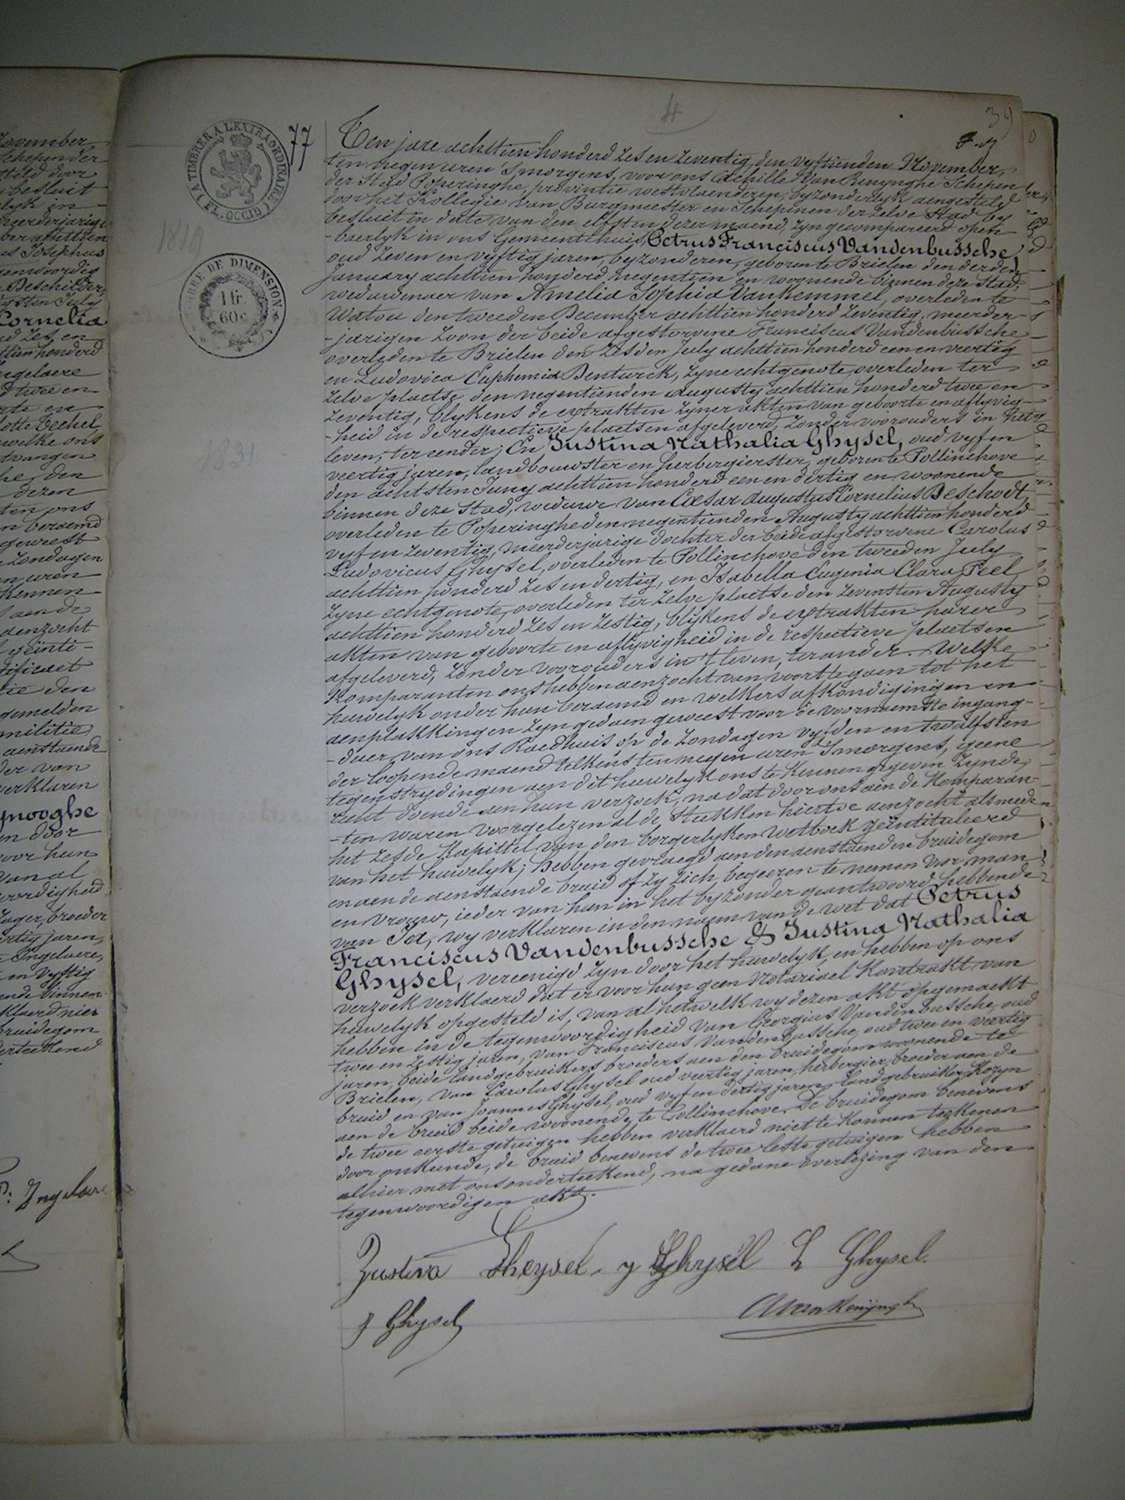 4
39
77
A TIMBRER A L'EXTRAORDINAIRE
FL. OCCID.
TIMBRE DE DIMENSION
1 fr
60c
1819
1831
Ten jare achttien honderd zes en zeventig, den vyftienden November,
ten negen uren 'smorgens, voor ons Achille Van Renynghe Schepen
der Stad Poperinghe, provintie westvlaenderen, byzonderlyk aengesteld
door het Kollegie van Burgmeester en Schepenen der zelve stad by
besluit in date van den elfsten dezer maend, zyn gecompareerd open-
-baerlyk in ons Gemeentehuis, Petrus Franciscus Vandenbussche,
oud zeven en vyftig jaren, byzonderen, geboren te Brielen den derden
January achttien honderd negentien en woonende binnen deze Stad,
weduwenaer van Amelia Sophia Vanhemmel, overleden te
Watou den tweeden December achttien honderd zeventig, meerder-
-jarigen zoon der beide afgestorvene Franciscus Vandenbussche
overleden te Brielen den zesden July achttien honderd een en veertig
en Ludovica Euphemia Denturck, zyne echtgenote, overleden ter
zelve plaetse den negentienden Augusty achttien honderd twee en
zeventig, blykens de extrakten zyner akten van geboorte en aflyvig-
-heid in de respectieve plaetsen afgeleverd, zonder voorouders in het
leven, ter eender; En Justina Nathalia Ghysel, oud vyf en
veertig jaren, landbouwster en herbergierster, geboren te Pollinchove
den achtsten Juny achttien honderd een en dertig en woonende
binnen deze stad, weduwe van Cæsar Augustus Cornelius Beschodt,
overleden te Poperinghe den negentienden Augusty achttien honderd
vyf en zeventig, meerderjarige dochter der beide afgestorvene Carolus
Ludovicus Ghysel, overleden te Pollinchove den tweeden July
achttien honderd zes en dertig, en Isabella Eugenia Clara Peel
zyne echtgenote, overleden ter zelve plaetse den zevensten Augusty
achttien honderd zes en zestig, blykens de extrakten harer
akten van geboorte en aflyvigheid in de respectieve plaetsen
afgeleverd, zonder voorouders in 't leven, ter ander. Welke
Komparanten ons hebben aenzocht van voort te gaen tot het
huwelyk onder hun beraemd en welkers afkondigingen en
aenplakkingen zyn gedaen geweest voor de voornaemste ingang-
-deur van ons Raedhuis op de zondagen vyfden en twalfsten
der loopende maend telkens ten negen uren 'smorgens, geene
tegenstrydingen aen dit huwelyk ons te kennen gegeven zynde,
recht doende aen hun verzoek, na dat door ons aen de Komparan-
-ten waren voorgelezen al de stukken hiertoe aenzocht alsmede
het zesde Kapittel van den borgerlyken wetboek geïntituleerd
van het huwelyk; hebben gevraegd aen den aenstaenden bruidegom
en aen de aenstaende bruid of zy zich begeeren te nemen voor man
en vrouw, ieder van hun in het byzonder geantwoord hebbende
van Ja; wy verklaren in den naem van de wet dat Petrus
Franciscus Vandenbussche & Justina Nathalia
Ghysel, vereenigd zyn door het huwelyk, en hebben op ons
verzoek verklaerd dat er voor hun geen notariael Kontrakt van
huwelyk opgesteld is, van al hetwelk wy dezen akt opgemaekt
hebben in de tegenwoordigheid van Georgius Vandenbussche, oud
twee en zestig jaren, van Franciscus Vandenbussche, oud twee en veertig
jaren, beide landgebruikers, broeders aen den bruidegom woonende te
Brielen, van Carolus Ghysel oud veertig jaren, herbergier, broeder aen de
bruid en van Joannes Ghysel, oud vyf en dertig jaren, landgebruiker, Kozyn
aen de bruid beide woonende te Pollinchove. De bruidegom benevens
de twee eerste getuigen hebben verklaerd niet te konnen teekenen
door onkunde, de bruid benevens de twee leste getuigen hebben
alhier met ons onderteekend, na gedane overlezing van den
tegenwoordigen akt.
Justina Gheysel y Ghysel L Ghysel.
J Ghysel
A Van Renynghe